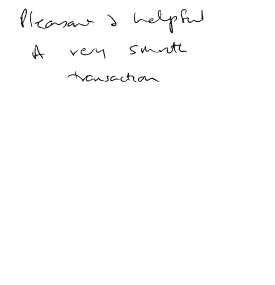 Pleasant & helpful
A very smooth
transaction